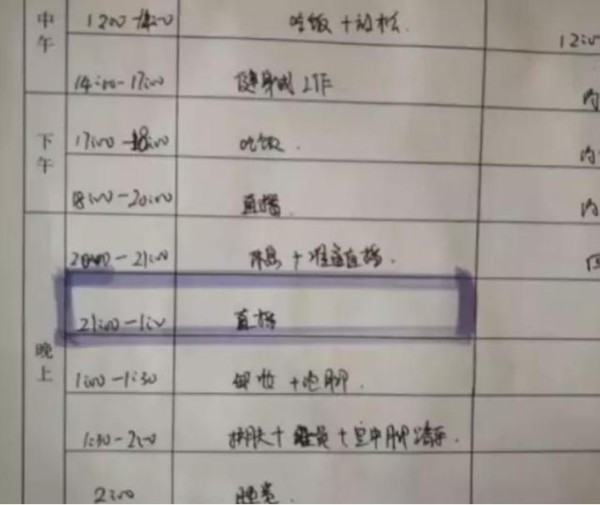 中午
12:00-14:00 吃饭+放松. 12:00
14:00-17:00 健身或工作 内
下午
17:00-18:00 吃饭. 内
18:00-20:00 直播. 内
晚上
20:00-21:00 休息+准备直播. 回
21:00-1:00 直播
1:00-1:30 卸妆+泡脚.
1:30-2:00 护肤+ +空中脚踏车.
2:00 睡觉.